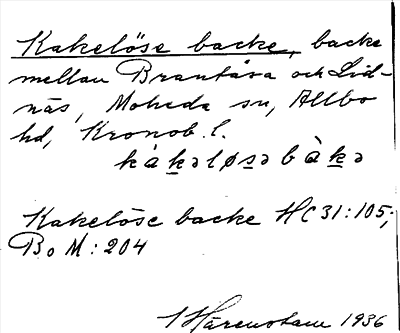 Kakelöse backe, backe
mellan Brantåsa och Lid-
näs, Moheda sn, Allbo
hd, Kronob. l.
kàkəløsəbàkə
Kakelöse backe HC31:105;
BoM:204
Härenstam 1936